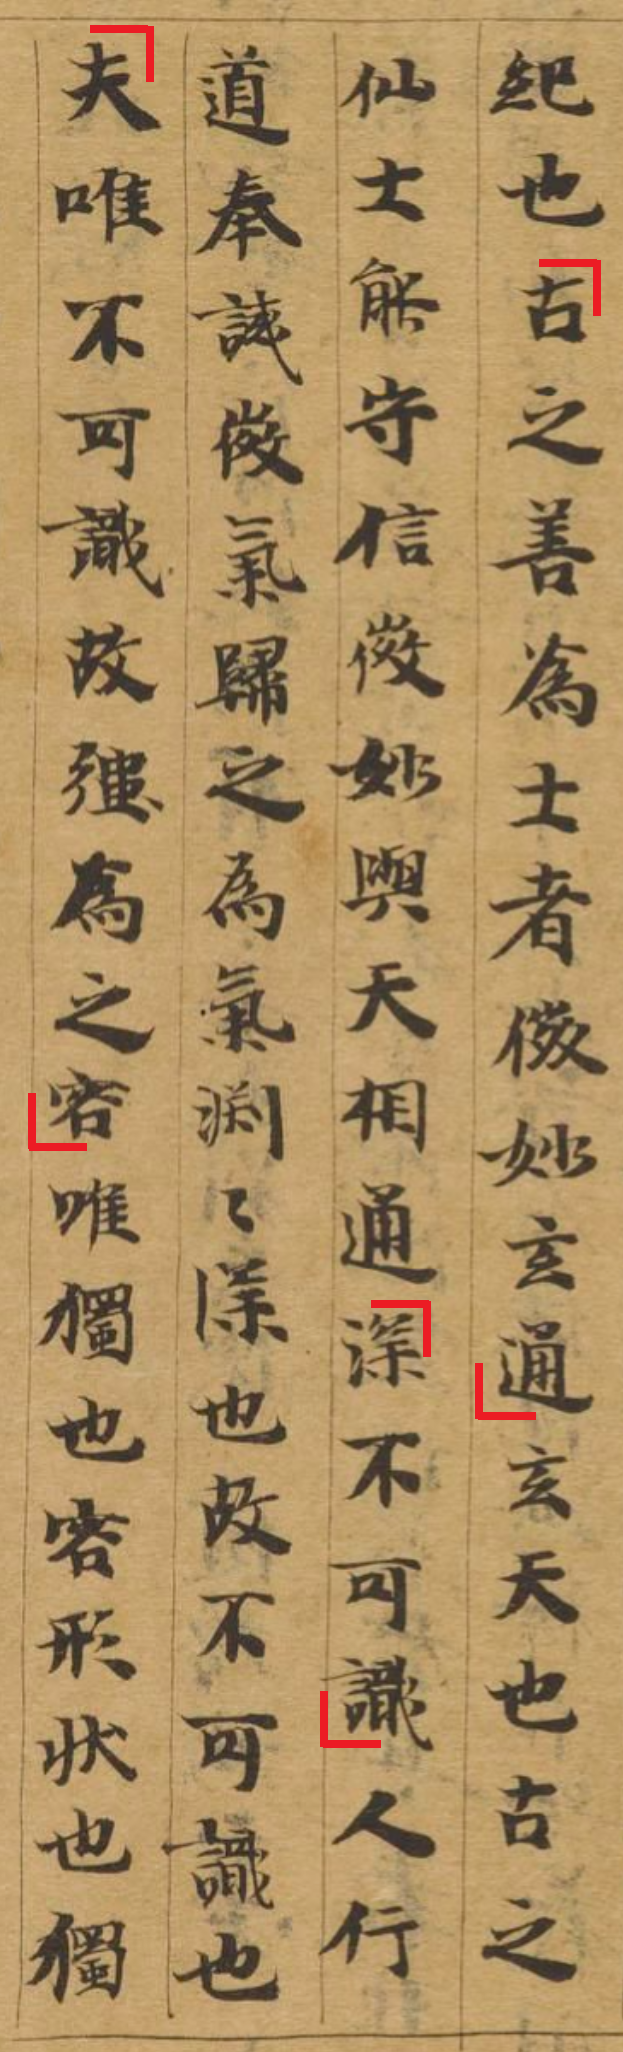 紀也古之善為士者微妙玄通玄天也古之
仙士能守信微妙與天相通深不可識人行
道奉誡微氣歸之為氣淵〻深也故不可識也
夫唯不可識故強為之容唯獨也容形狀也獨